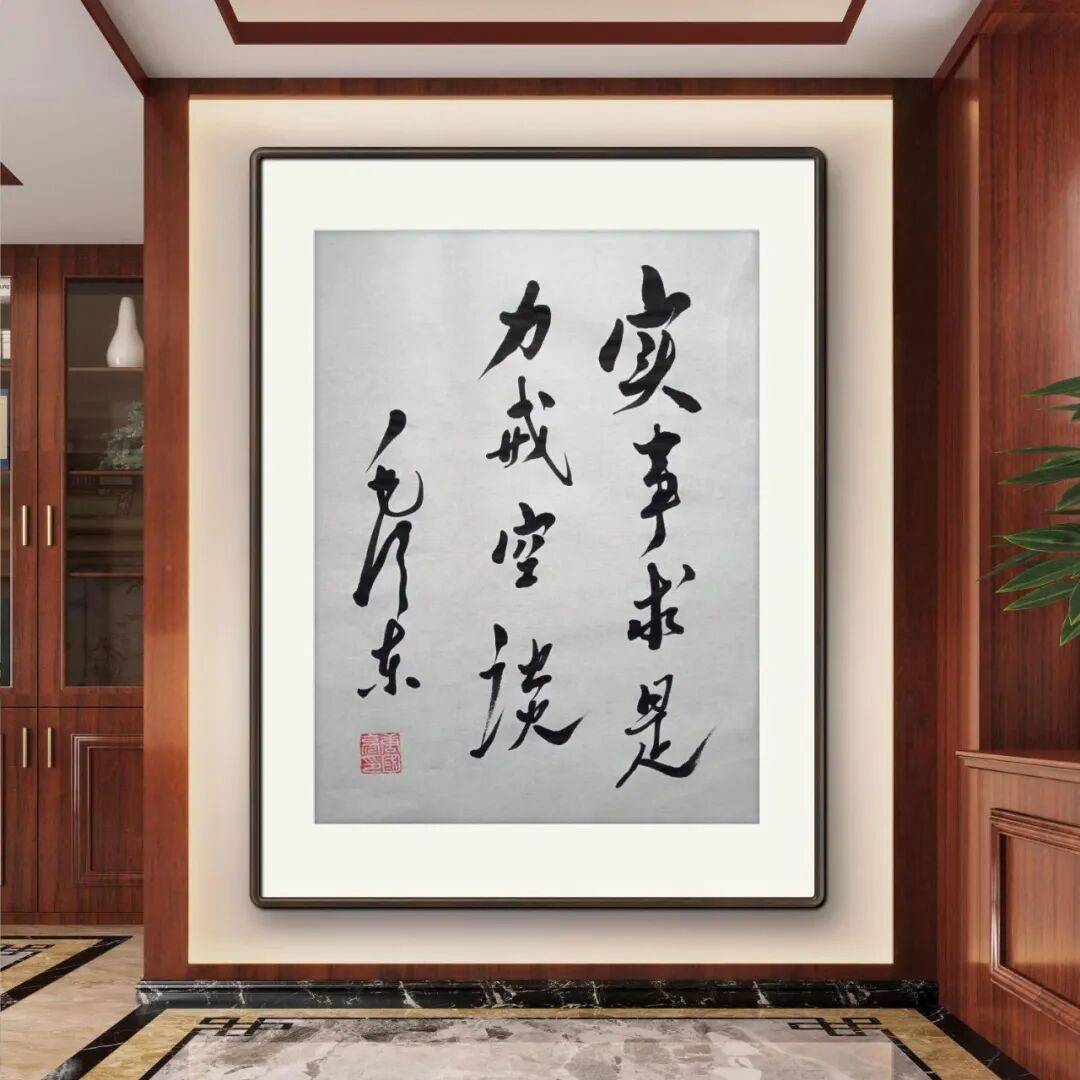 实事求是
力戒空谈
毛泽东